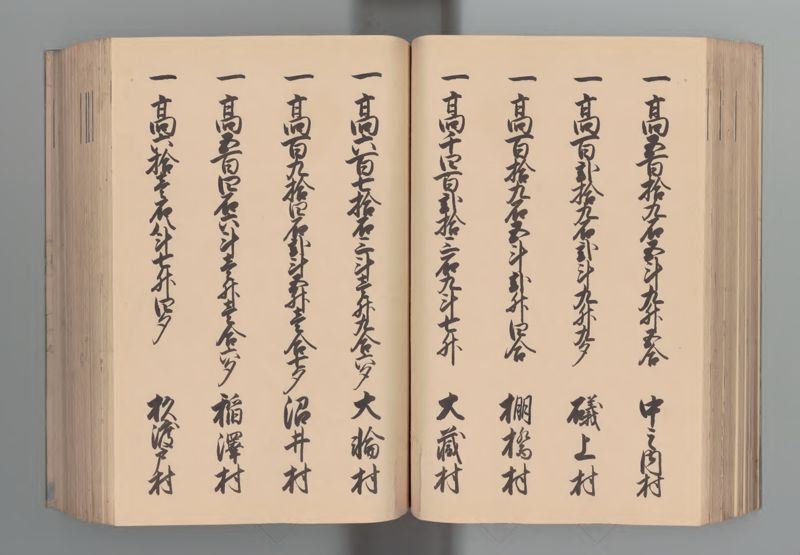 一 高五百拾九石五斗九升五合 中之内村
一 高百弐拾九石弐斗九升九夕 礒上村
一 高百拾九石五斗弐升四合 棚橋村
一 高千四百弐拾三石九斗七升 大蔵村
一 高六百七拾石三斗壱升九合六夕 大輪村
一 高百九拾四石弐斗五升壱合七夕 沼井村
一 高五百四石六斗壱升壱合六夕 稲澤村
一 高六拾壱石八斗七升四夕 杉渡戸村